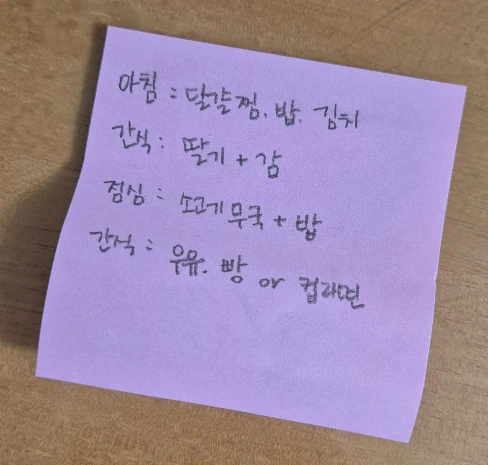 아침 : 달걀찜. 밥. 김치
간식 : 딸기 + 감
점심 : 소고기 무국 + 밥
간식 : 우유. 빵 or 컵라면